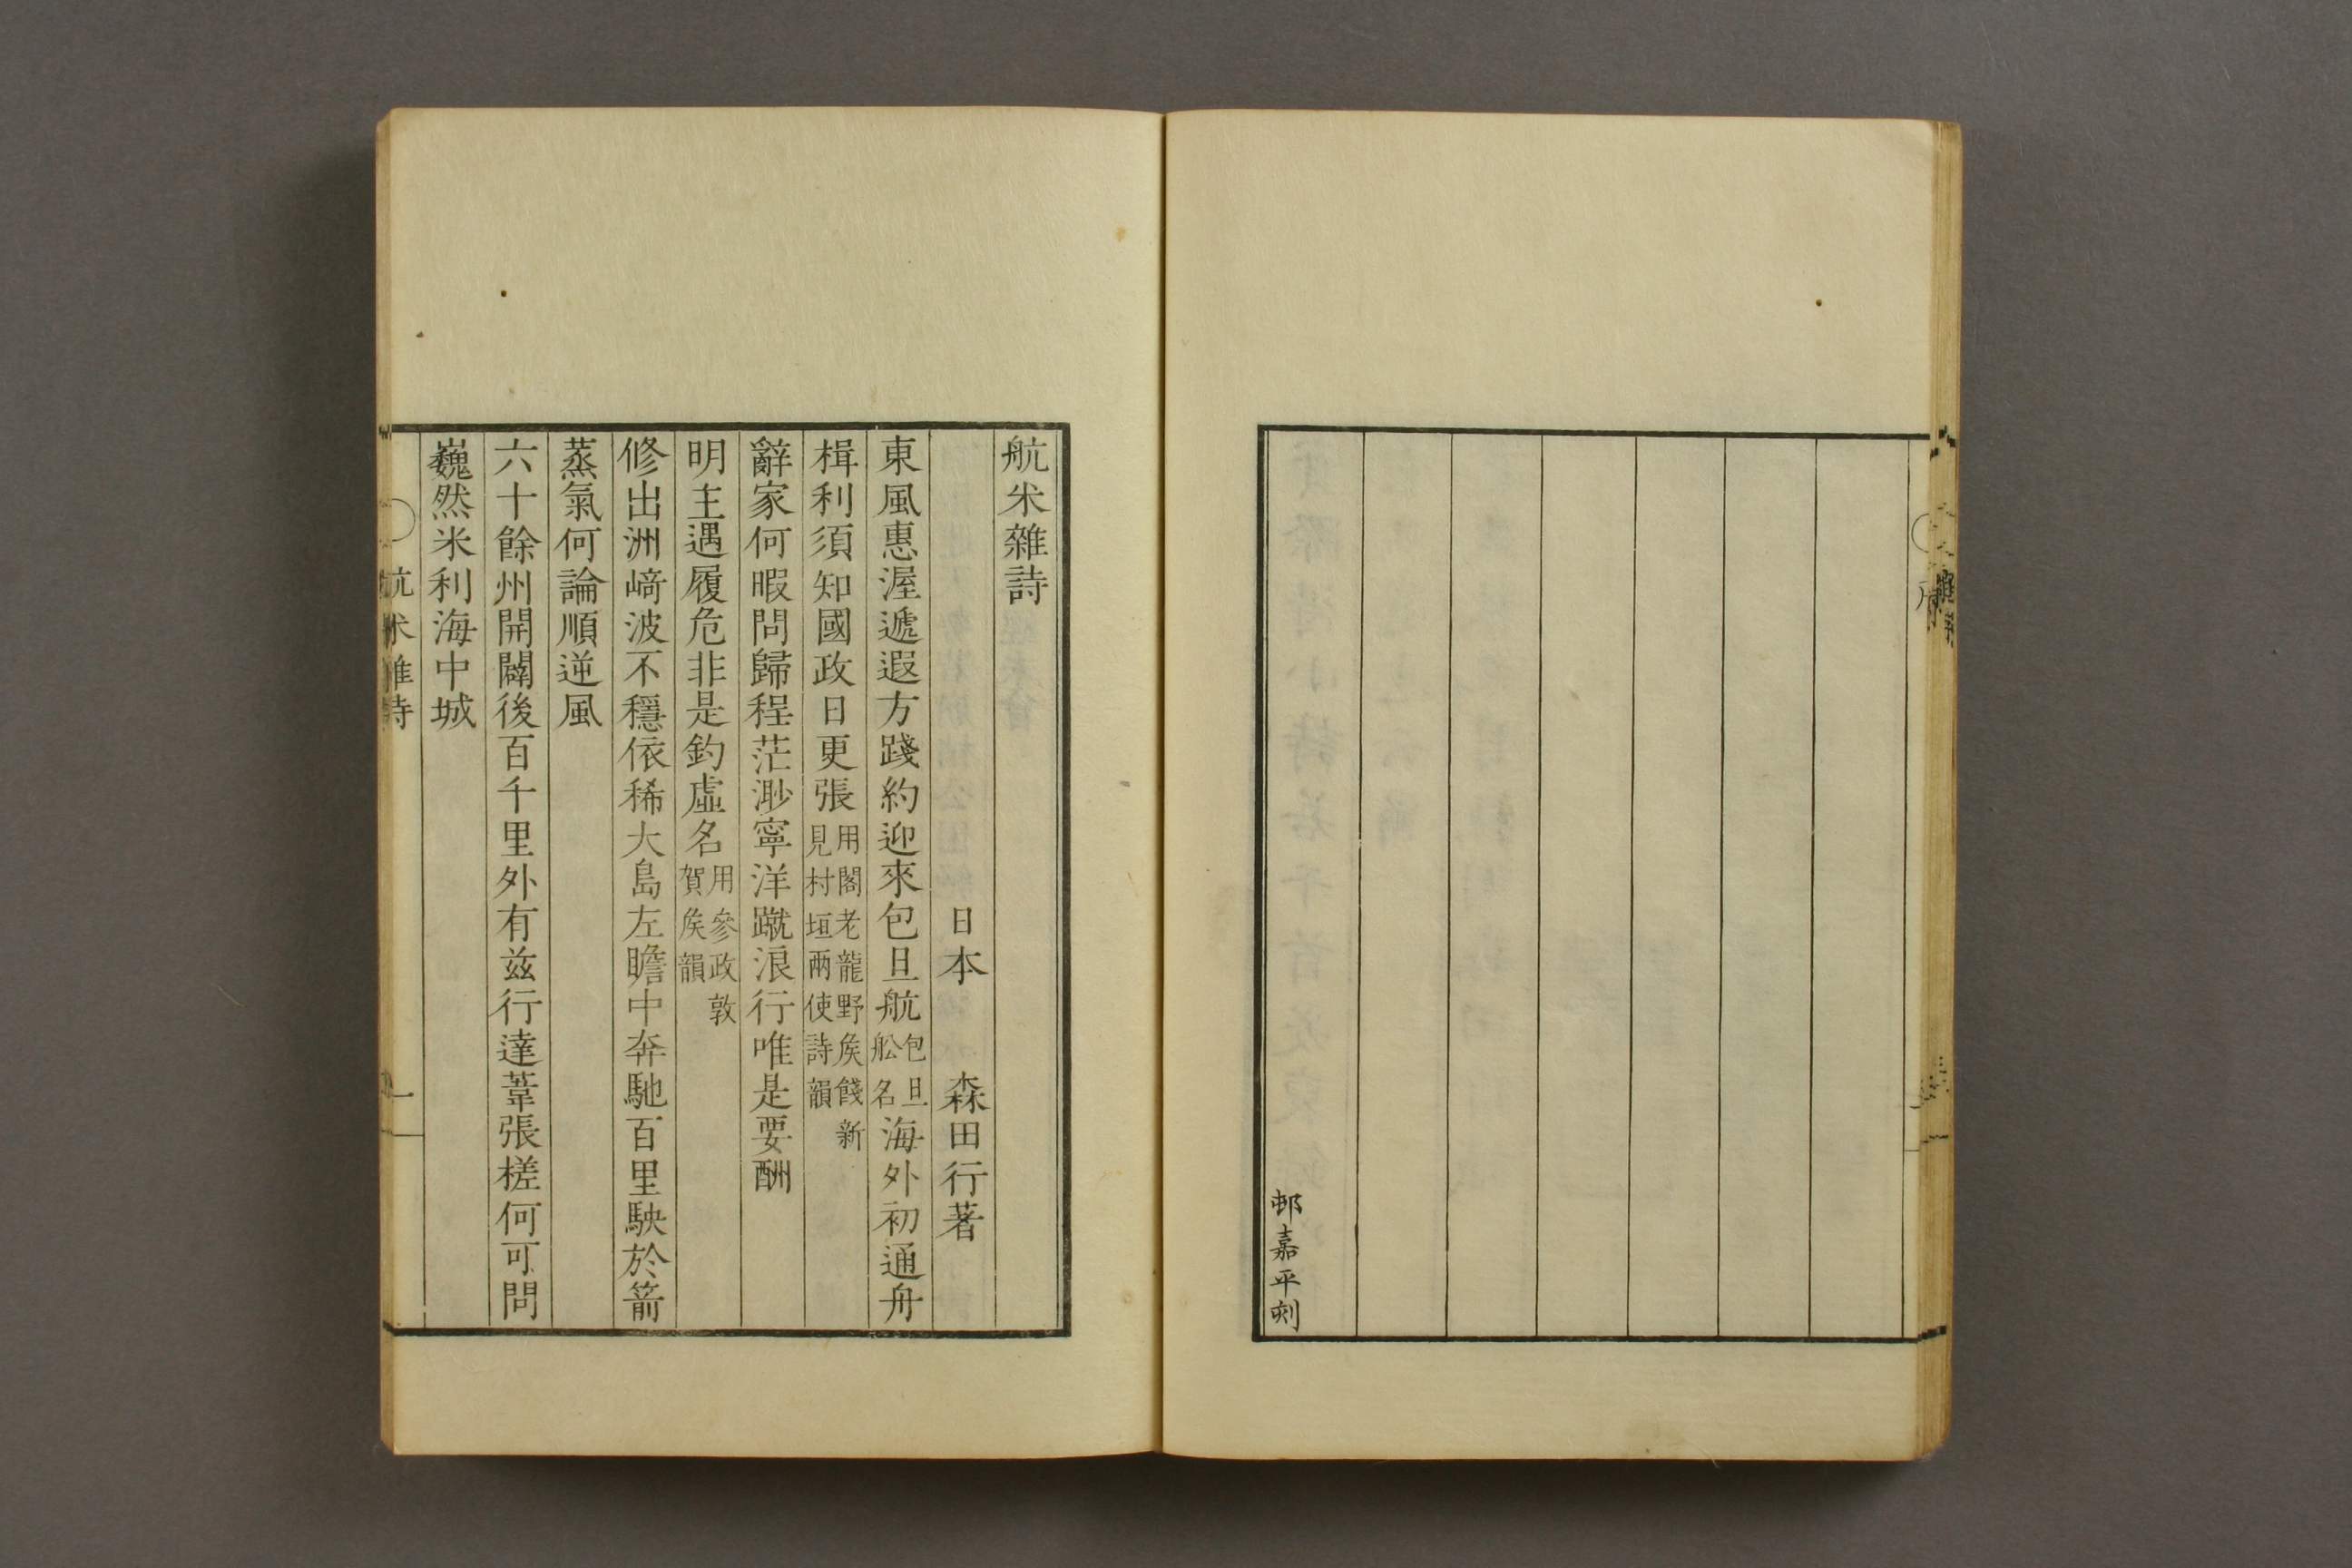 邨嘉平刻
航米雜詩
日本 森田行著
東風惠渥遞遐方踐約迎來包旦航包旦舩名海外初通舟
楫利須知國政日更張用閣老龍野矦餞新見村垣兩使詩韻
辭家何暇問歸程茫渺寧洋蹴浪行唯是要酬
明主遇履危非是釣虛名用參政敦賀矦韻
修出洲﨑波不穩依稀大島左瞻中奔馳百里駚於箭
蒸氣何論順逆風
六十餘州開闢後百千里外有茲行達葦張槎何可問
巍然米利海中城
航米雜詩
一